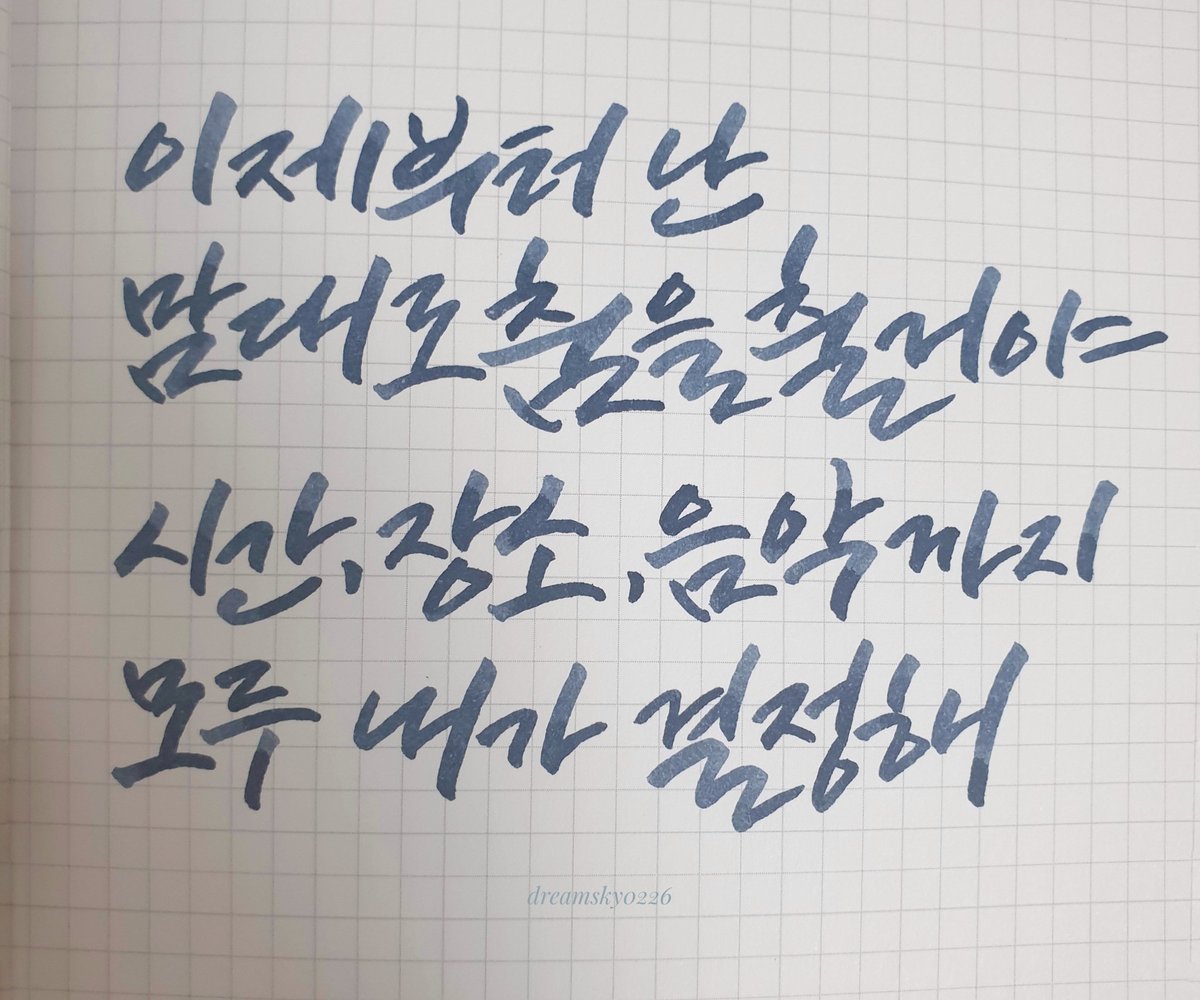 이제부터 난
맘대로 춤을 출거야
시간, 장소, 음악까지
모두 내가 결정해
dreamsky0226